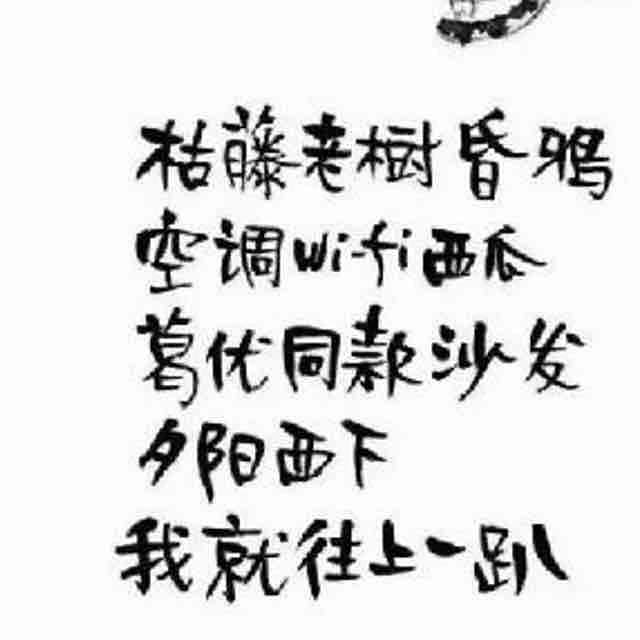 枯藤老树昏鸦
空调wi-fi西瓜
葛优同款沙发
夕阳西下
我就往上一趴